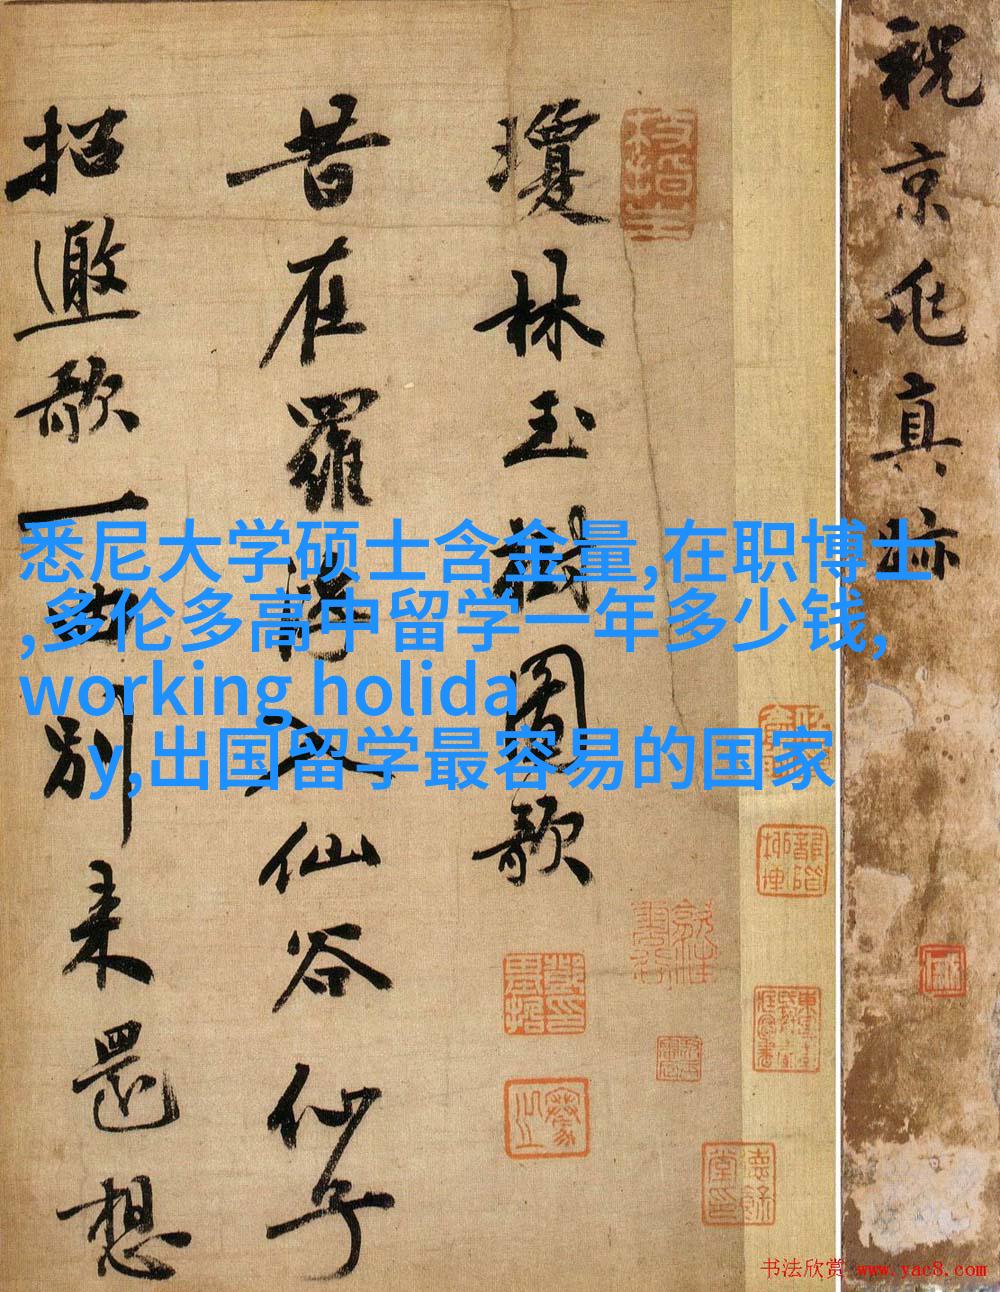 祝京兆真跡
枝指生
瓊林玉樹圖歌
昔在羅浮入仙谷仙子
招邀歌一曲別来還想
悉尼大学硕士含金量,在职博士
,多伦多高中留学一年多少钱,
working holida
y,出国留学最容易的国家
书法欣赏 www.yac8.com